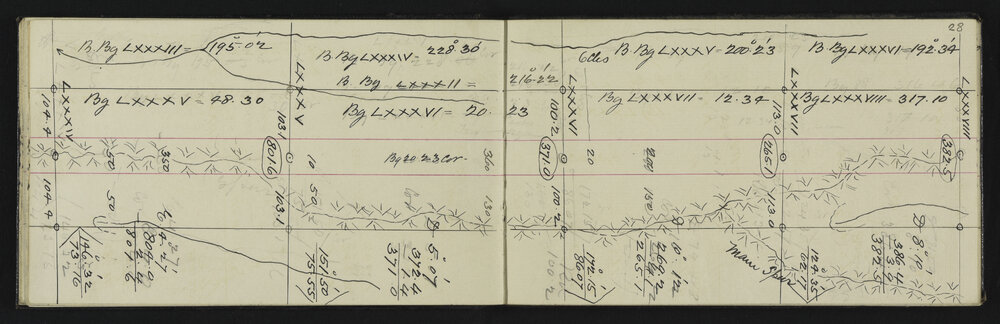 28
B. Bg LXXXIII = 195°.02'
B. Bg LXXXIV = 228°30'
B. Bg LXXXII = 216°.22'
6Ccs
B. Bg LXXXV = 200°23'
B. Bg LXXXVI = 192°.34
Bg LXXXV = 48.30
Bg LXXXVI = 20. 23
Bg LXXXVII = 12.34
Bg LXXXVIII = 317.10
LXXXIV
LXXXV
LXXXVI
LXXXVII
LXXXVIII
104.4
103.1
100.2
113.0
801.6
371.0
265.1
382.5
50
350
10
Bg 20 23 Cor.
360
20
200
104.4
50
103.1
50
130
100.2
150
113.0
4.27
804.0
2.4
801.6
146.32
73.16
151.50
75.55
D 5.07
372.4
1.4
371.0
172.15
86.07
D 10.12
269.2
4.1
265.1
Main Spur
124.35
62.17
D 8.10
386.4
3.9
382.5